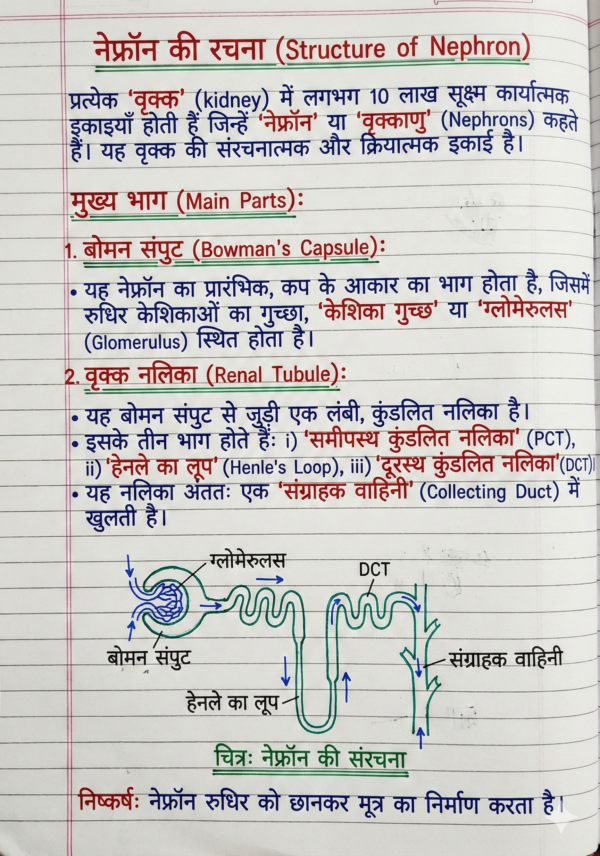 नेफ्रॉन की रचना (Structure of Nephron)
प्रत्येक 'वृक्क' (kidney) में लगभग 10 लाख सूक्ष्म कार्यात्मक
इकाइयाँ होती हैं जिन्हें 'नेफ्रॉन' या 'वृक्काणु' (Nephrons) कहते
हैं। यह वृक्क की संरचनात्मक और क्रियात्मक इकाई है।
मुख्य भाग (Main Parts):
1. बोमन संपुट (Bowman's Capsule):
• यह नेफ्रॉन का प्रारंभिक, कप के आकार का भाग होता है, जिसमें
रुधिर केशिकाओं का गुच्छा, 'केशिका गुच्छ' या 'ग्लोमेरुलस'
(Glomerulus) स्थित होता है।
2. वृक्क नलिका (Renal Tubule):
• यह बोमन संपुट से जुड़ी एक लंबी, कुंडलित नलिका है।
• इसके तीन भाग होते हैं: i) 'समीपस्थ कुंडलित नलिका' (PCT),
ii) 'हेनले का लूप' (Henle's Loop), iii) 'दूरस्थ कुंडलित नलिका'(DCT)।
• यह नलिका अंततः एक 'संग्राहक वाहिनी' (Collecting Duct) में
खुलती है।
ग्लोमेरुलस
DCT
बोमन संपुट
संग्राहक वाहिनी
हेनले का लूप
चित्र: नेफ्रॉन की संरचना
निष्कर्ष: नेफ्रॉन रुधिर को छानकर मूत्र का निर्माण करता है।